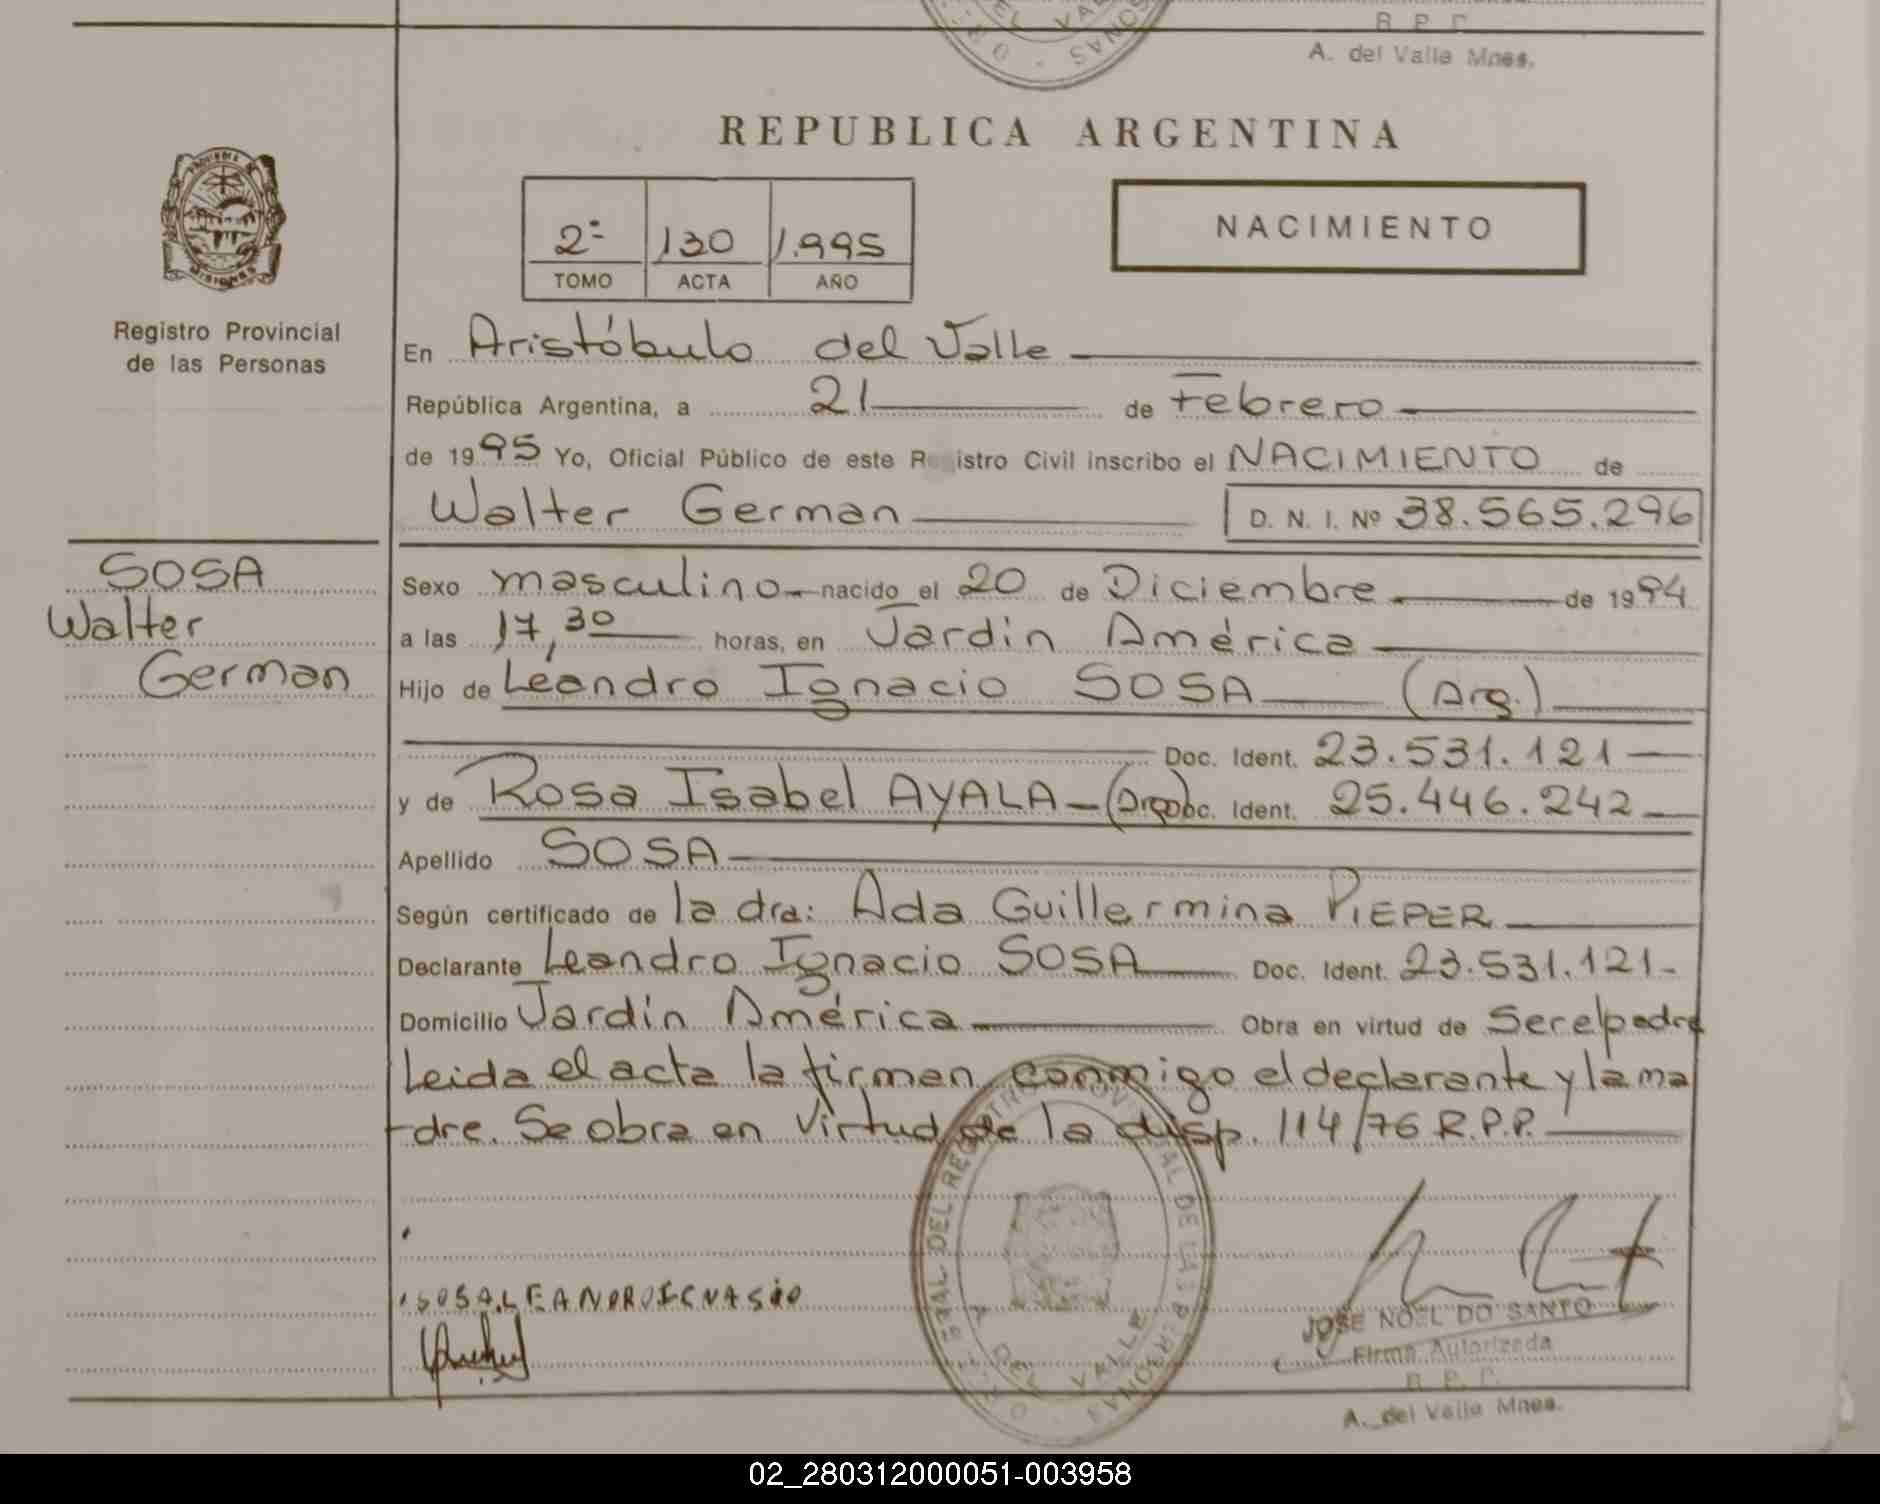 R. P. P.
A. del Valle Mnes.
REPUBLICA ARGENTINA
2º 130 1.995
TOMO ACTA AÑO
NACIMIENTO
Registro Provincial
de las Personas
En Aristóbulo del Valle
República Argentina, a 21 de Febrero
de 1995 Yo, Oficial Público de este Registro Civil inscribo el NACIMIENTO de
Walter German D. N. I. Nº 38.565.296
SOSA
Walter
German
Sexo masculino nacido el 20 de Diciembre de 1994
a las 17,30 horas, en Jardín América
Hijo de Leandro Ignacio SOSA (Arg.)
Doc. Ident. 23.531.121
y de Rosa Isabel AYALA (Arg) Doc. Ident. 25.446.242
Apellido SOSA
Según certificado de la dra: Ada Guillermina PIEPER
Declarante Leandro Ignacio SOSA Doc. Ident. 23.531.121
Domicilio Jardín América Obra en virtud de Ser el padre
Leida el acta la firman conmigo el declarante y la ma
dre. Se obra en virtud de la disp. 114/76 R.P.P.
SOSA LEANDRO IGNASIO
DEL REGISTRO PROVINCIAL DE LAS PERSONAS
A. DEL VALLE
JOSE NOEL DO SANTO
Firma Autorizada
R. P. P.
A. del Valle Mnes.
02_280312000051-003958